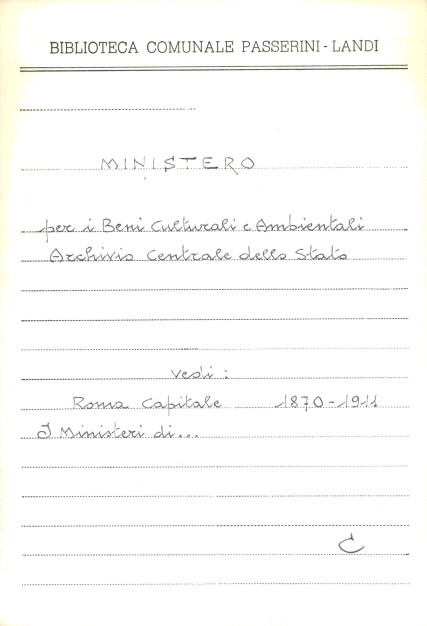 BIBLIOTECA COMUNALE PASSERINI - LANDI
MINISTERO
per i Beni Culturali e Ambientali
Archivio Centrale dello Stato
vedi :
Roma Capitale 1870-1911
I Ministeri di...
C